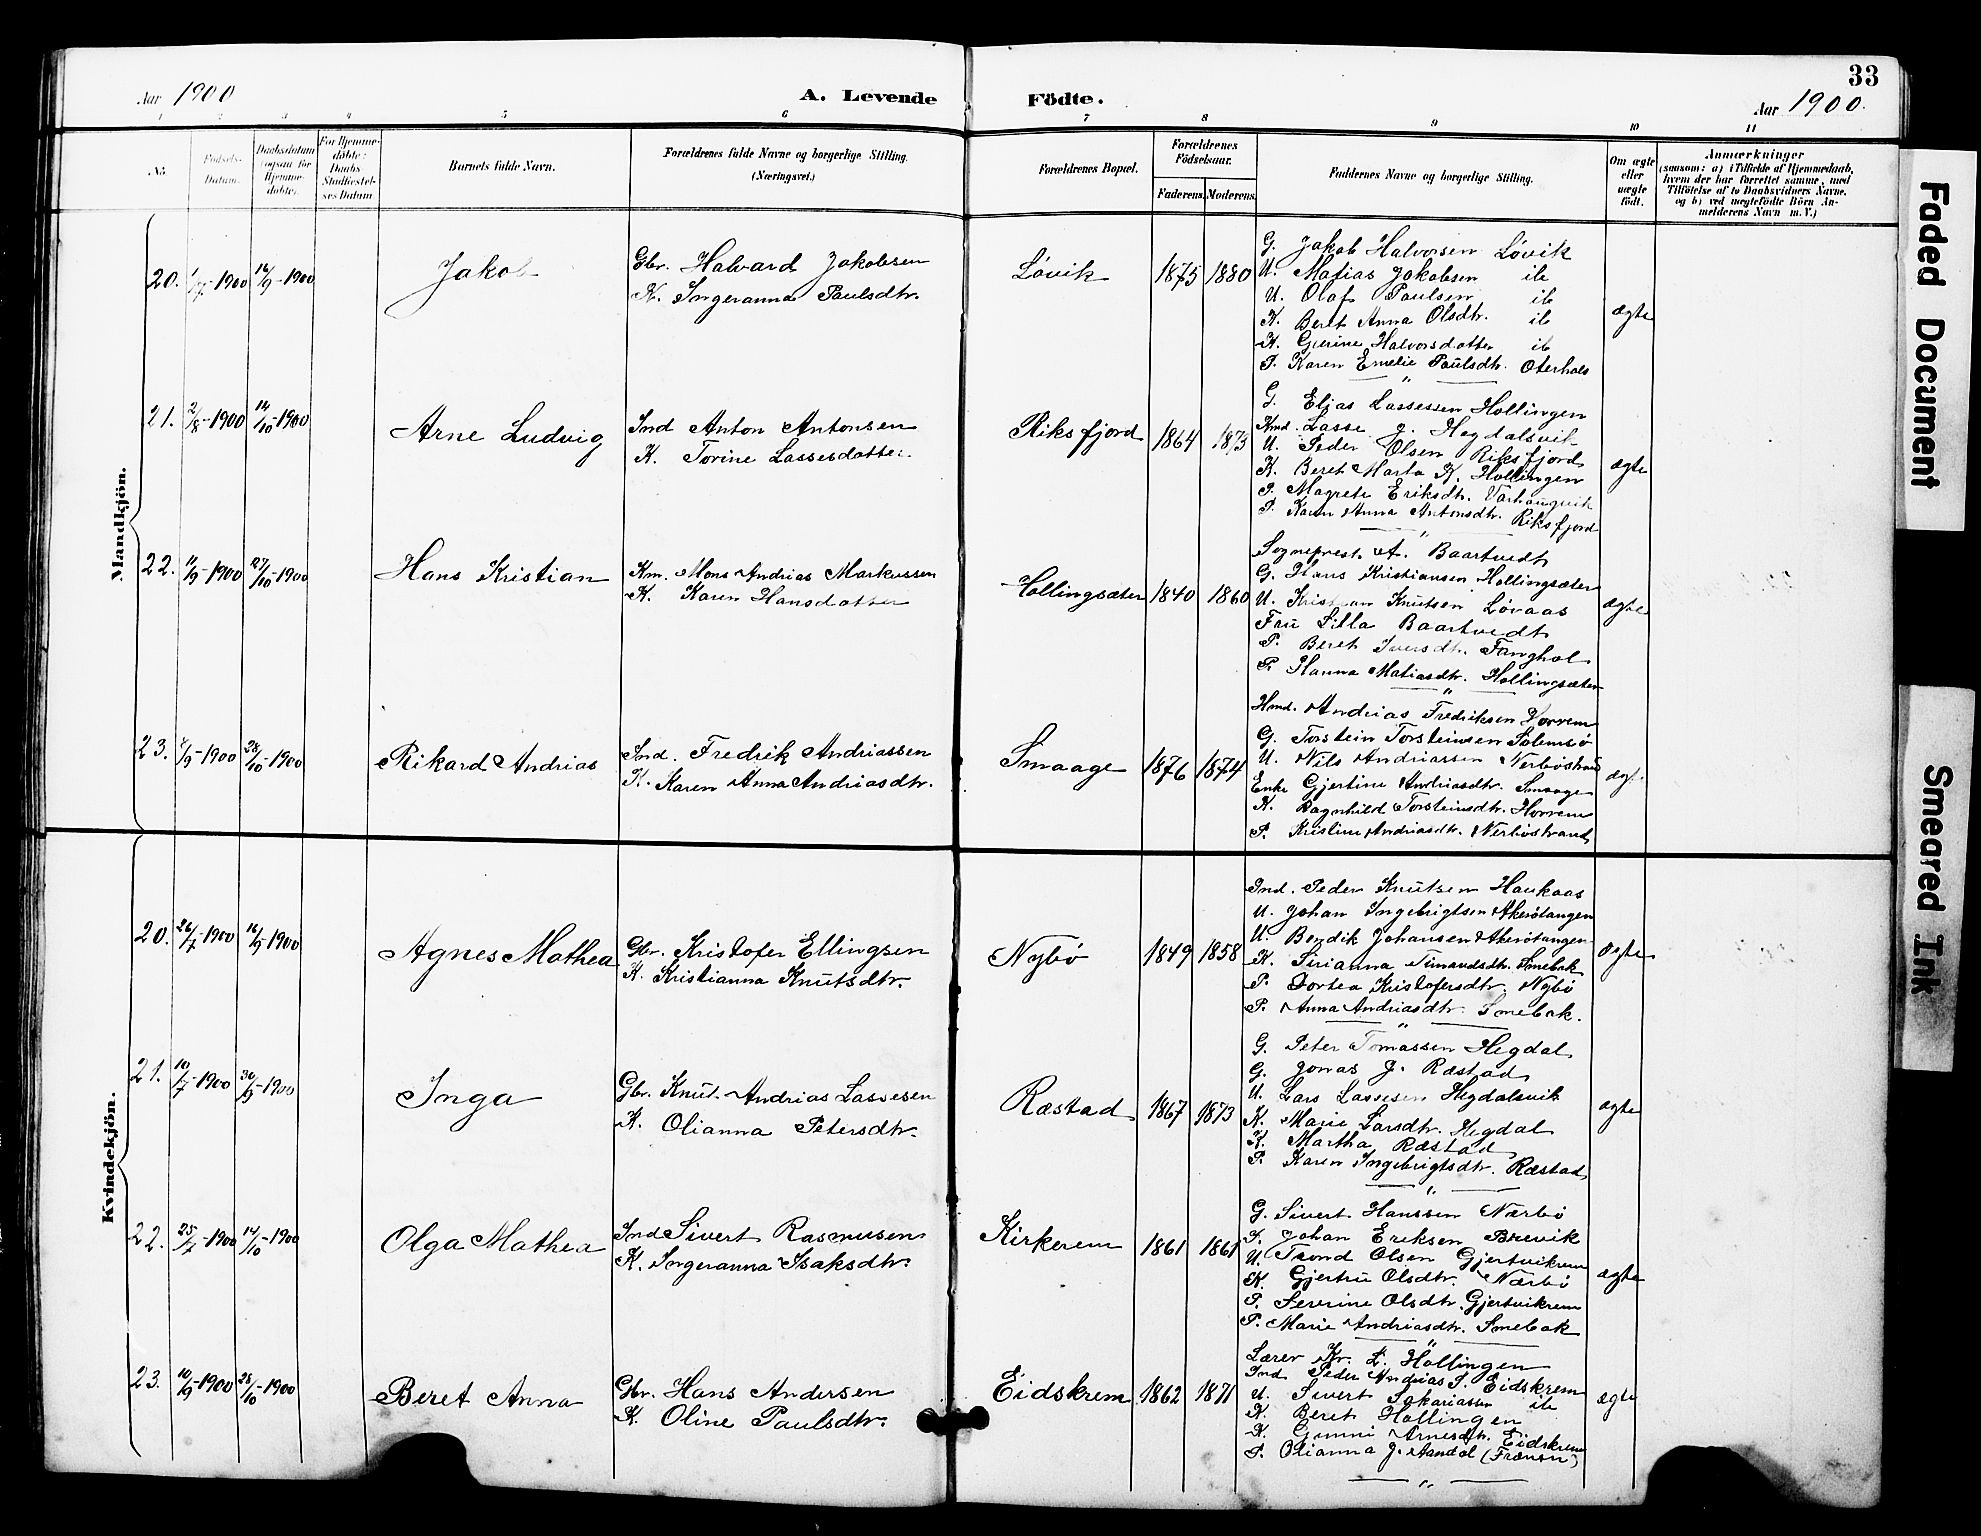 33
Aar 1900
A. Levende Födte.
Aar 1900.
1 2 3 4 5 6 7 8 9 10 11
No.
Fødsels-Datum.
Daabsdatum (ogsaa for Hjemme-døbte).
For Hjemme-døbte: Daabs Stadfæstel-ses Datum.
Barnets fulde Navn.
Forældrenes fulde Navne og borgerlige Stilling. (Næringsvei.)
Forældrenes Bopæl.
Forældrenes Fødselsaar.
Faderens. Moderens.
Faddernes Navne og borgerlige Stilling.
Om ægte eller uægte født.
Anmærkninger
(saasom: a) i Tilfælde af Hjemmedaab, hvem der har forrettet samme, med Tilføielse af to Daabsvidners Navne, og b) ved uægtefødte Børn An-melderens Navn m. V.)
Mandkjön.
20. 1/7-1900 16/9-1900 Jakob
Gbr. Halvard Jakobsen
K. Ingeranna Paulsdtr.
Løvik 1875 1880
G. Jakob Halvorsen Løvik
U. Matias Jakobsen ib
U. Olaf Paulsen ib
K. Beret Anna Olsdtr. ib
K. Gurine Halvorsdatter ib
P. Karen Emelie Paulsdtr. Oterhals
ægte
21. 2/8-1900 14/10-1900 Arne Ludvig
Ind Anton Antonsen
K. Torine Lassesdatter.
Riksfjord 1864 1873
G. Elias Lassessen Hollingen
Kmd. Lasse J. Hegdalsvik
U. Peder Olsen Riksfjord
K. Beret Marta K. Hollingen
P. Magrete Eriksdtr. Varhaugvik
P. Karen Anna Antonsdtr. Riksfjord
ægte
22. 11/9-1900 27/10-1900 Hans Kristian
Km. Mons Andrias Markussen
K. Karen Hansdatter
Hollingsæter 1840 1860
Sogneprest A. Baartvedt
G. Hans Kristiansen Hollingsæter
U. Kristian Knutsen Løvaas
Fru Silla Baartvedt
P. Beret Iversdtr. Tanghol
P. Hanna Matiasdtr. Hollingsæter
ægte
23. 7/9-1900 28/10-1900 Rikard Andrias
Ind. Fredrik Andriassen
K. Karen Anna Andriasdtr.
Smaage 1876 1874
Hmd. Andrias Fredriksen Horrem
G. Torstein Torsteinsen Solemsø
U. Nils Andriassen Nerbøstrand
Enke Gjertine Andriasdtr. Smaage
K. Ragnhild Torsteinsdtr. Horrem
P. Kristine Andriasdtr. Nerbøstrand
ægt.
Kvindekjön.
20. 26/7-1900 16/9-1900 Agnes Mathea
Gbr. Kristofer Ellingsen
K. Kristianna Knutsdtr.
Nybø 1849 1858
Ind. Peder Knutsen Haukaas
U. Johan Ingebrigtsen Akerøtangen
U. Bendik Johansen Akerøtangen
K. Sirianna Simavdsdtr. Smebak
P. Dortea Kristofersdtr. Nybø
P. Anna Andriasdtr. Smebak.
ægte
21. 10/7-1900 30/9-1900 Inga
Gbr. Knut Andrias Lassesen
K. Olianna Petersdtr.
Ræstad 1867 1873
G. Peter Tomassen Hegdal
G. Jonas J. Ræstad
U. Lars Lassesen Hegdalsvik
K. Marie Larsdtr. Hegdal
K. Martha Ræstad
P. Karen Ingebrigtsdtr. Ræstad
ægte
22. 25/7-1900 14/10-1900 Olga Mathea
Ind Sivert Rasmusen
K. Ingeranna Isaksdtr.
Kirkerem 1861 1861
G. Sivert Hanssen Nærbø
S. Johan Eriksen Brevik
U. Trond Olsen Gjertvikrem
K. Gjertru Olsdtr. Nærbø
P. Severine Olsdtr. Gjertvikrem
P. Marie Andriasdtr. Smebak
ægte
23. 10/9-1900 28/10-1900 Beret Anna
Gbr. Hans Andersen
K. Oline Paulsdtr.
Eidskrem 1862 1871
Lærer Kr. L. Hollingen
Ind Peder Andrias S. Eidskrem
U. Sivert Sakariassen ib
K. Beret Hollingen
K. Gunni Arnesdtr. Eidskrem
P. Olianna J. Aandal (Frænen)
ægte
Faded Document
Smeared Ink